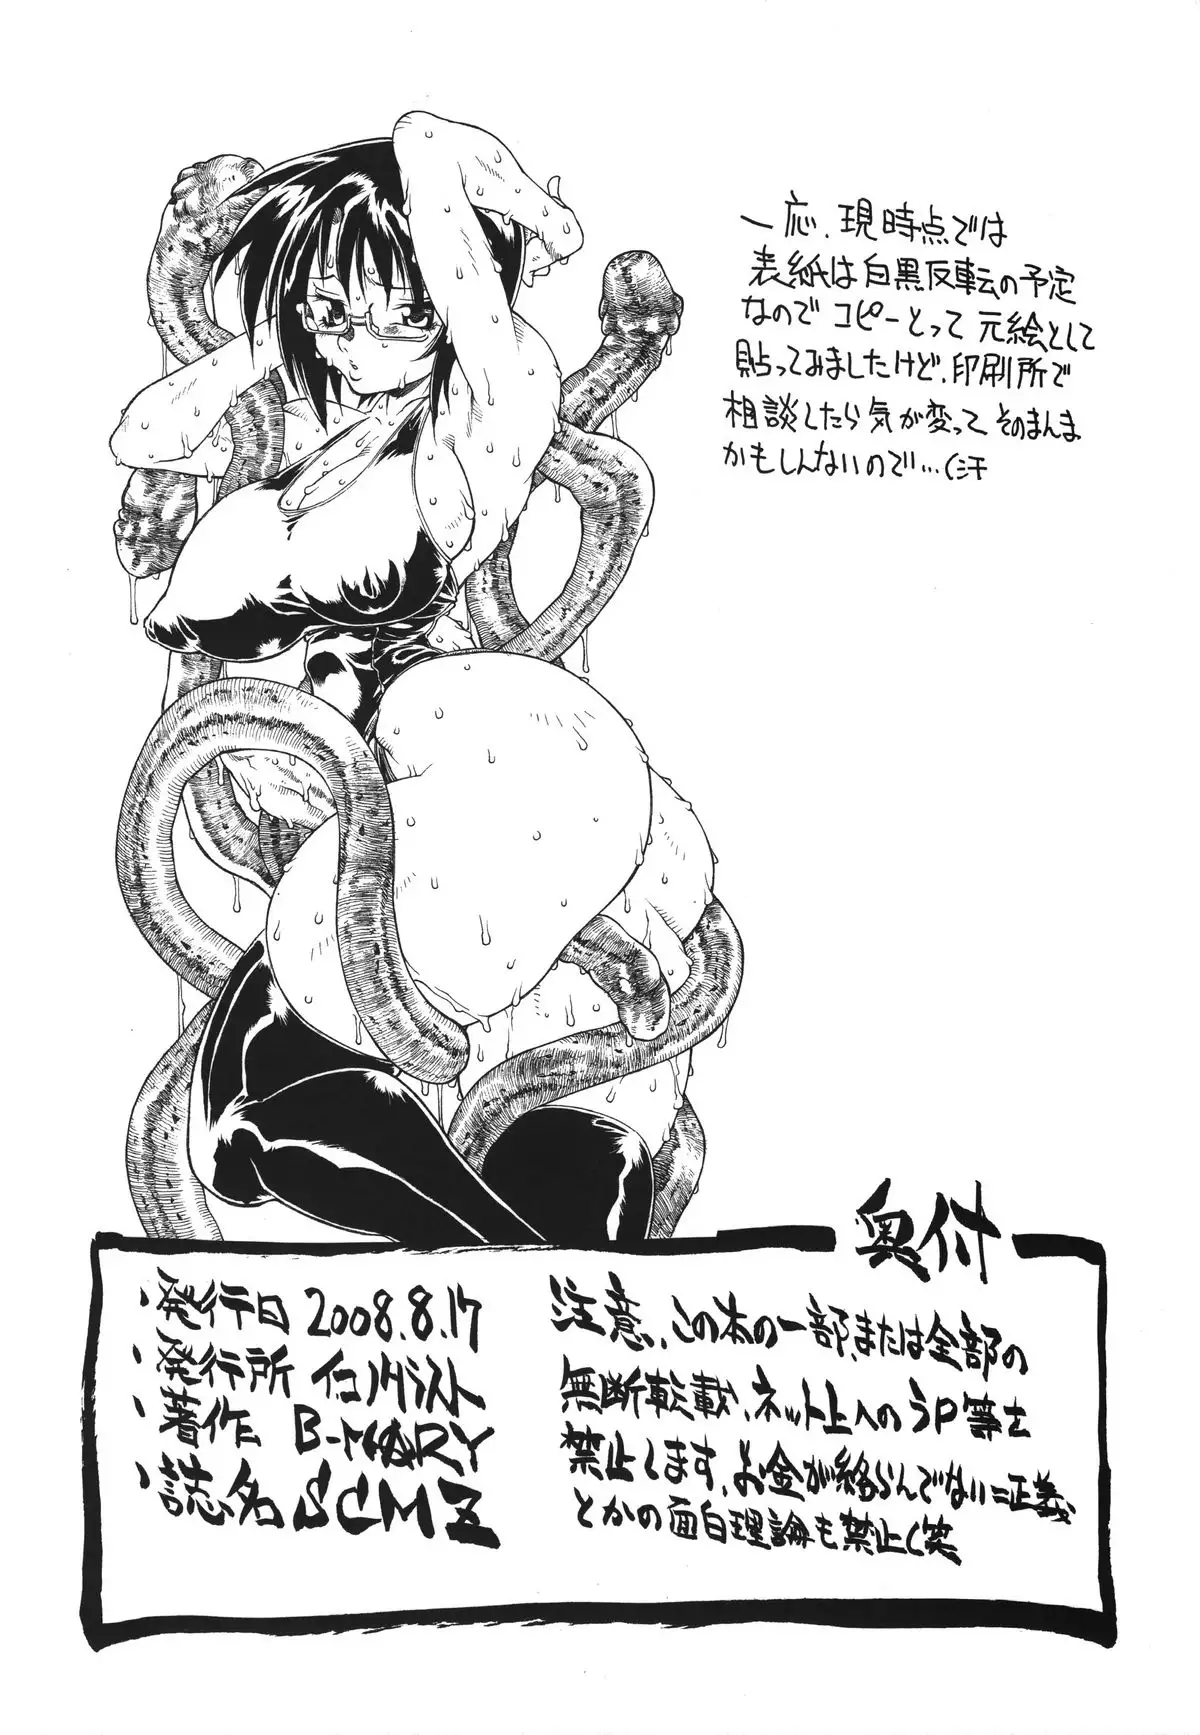 一応、現時点では
表紙は白黒反転の予定
なので コピーとって 元絵として
貼ってみましたけど、印刷所で
相談したら気が変って そのまんま
かもしんないので…(汗
奥付
・発行日 2008.8.17
・発行所
・著作 B-MARY
・誌名 SCMZ
注意、この本の一部、または全部の
無断転載、ネット上へのうP等は
禁止します、お金が絡らんでない=正義
とかの面白理論も禁止(笑